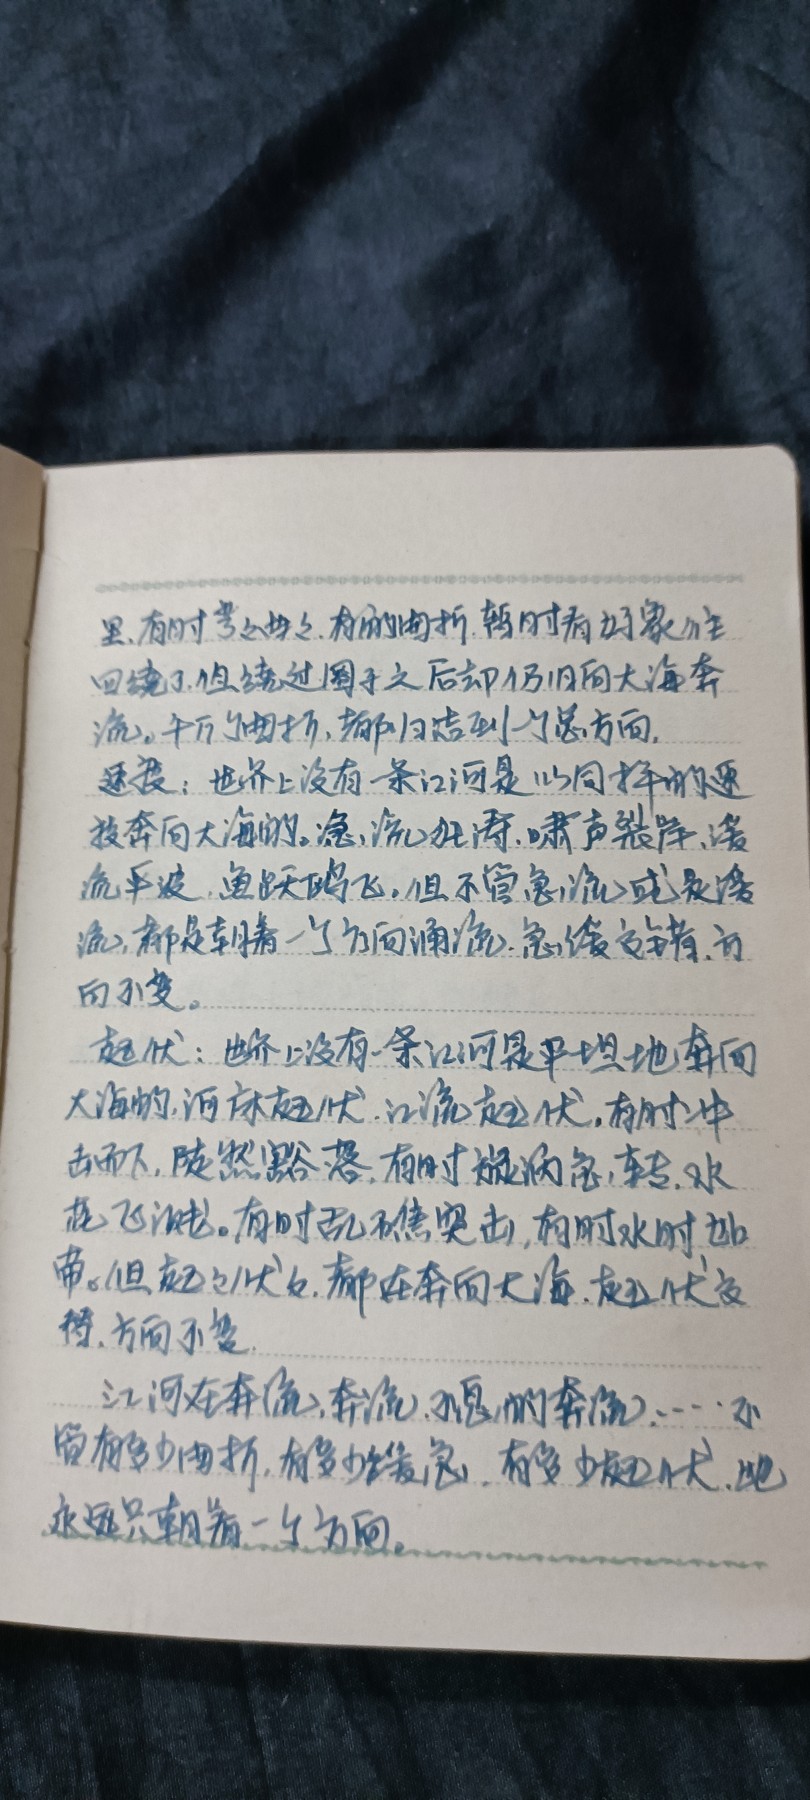 里,有时弯弯曲曲,有的曲折,暂时看好象往
回绕了,但绕过圈子之后却仍旧向大海奔
流。千万个曲折,都归结到一个总方向。
速度:世界上没有一条江河是以同样的速
度奔向大海的。急流狂涛,啸声裂岸,缓
流平波,鱼跃鸥飞。但不管急流或是缓
流,都是朝着一个方向涌流。急缓交错,方
向不变。
起伏:世界上没有一条江河是平坦地奔向
大海的,河床起伏,江流起伏。有时冲
击而下,陡然豁落,有时漩涡急转,水
花飞溅。有时乱礁突出,有时水时
带。但起起伏伏,都在奔向大海,起伏交
替,方向不变。
江河在奔流,奔流,不息的奔流,……不
管有多少曲折,有多少缓急,有多少起伏,她
永远只朝着一个方向。